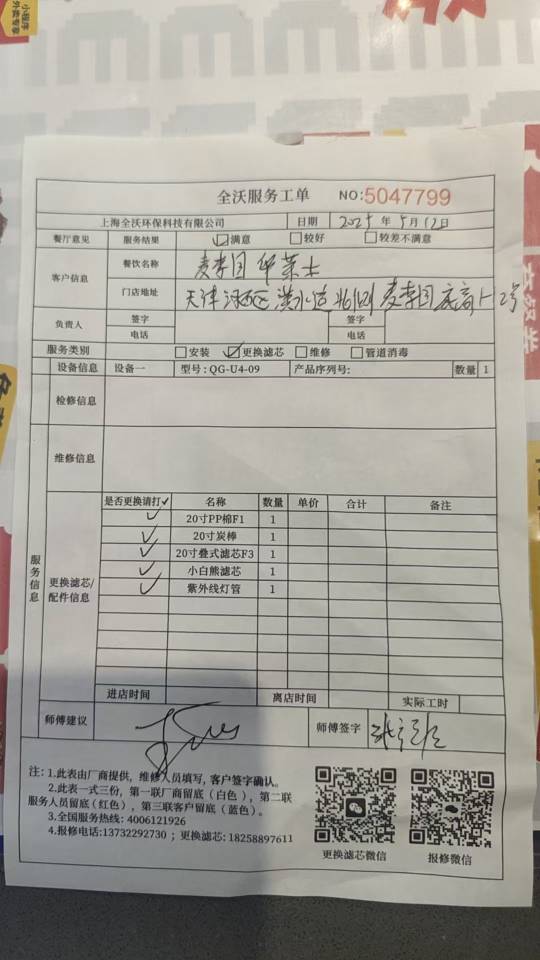 小程序
外卖专享
全沃服务工单 NO:5047799
上海全沃环保科技有限公司 日期 年5月12日
餐厅意见 服务结果 ☑满意 □较好 □较差不满意
客户信息 餐饮名称 麦李园 华莱士
门店地址 天津 河西区 洪水道 麦李园 底商 2号
负责人 签字 签字
电话 电话
服务类别 □安装 ☑更换滤芯 □维修 □管道消毒
设备信息 设备一 型号:QG-U4-09 产品序列号: 数量 1
检修信息
维修信息
服务信息
更换滤芯/配件信息
是否更换请打✓ 名称 数量 单价 合计 备注
✓ 20寸PP棉F1 1
✓ 20寸炭棒 1
✓ 20寸叠式滤芯F3 1
✓ 小白熊滤芯 1
✓ 紫外线灯管 1
进店时间 离店时间 实际工时
师傅建议 师傅签字
注: 1.此表由厂商提供, 维修人员填写, 客户签字确认。
2.此表一式三份, 第一联厂商留底(白色), 第二联
服务人员留底(红色), 第三联客户留底(蓝色)。
3.全国服务热线: 4006121926
4.报修电话:13732292730 ; 更换滤芯: 18258897611
更换滤芯微信 报修微信